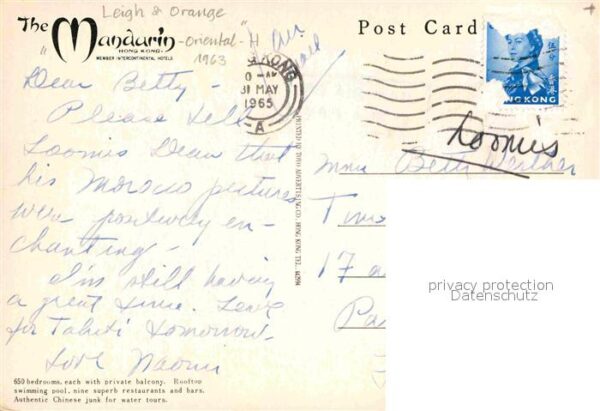 Leigh & Orange
The Mandarin
HONG KONG
MEMBER INTERCONTINENTAL HOTELS
"-oriental-" H
1963
Air
Mail
Post Card
HONG KONG
31 MAY
1965
-A
香港
HONG KONG
Dear Betty -
Please tell
Loomis Dean that
his Morocco pictures
were positively en-
chanting -
I'm still having
a great time. Leave
for Tahiti tomorrow.
Love Naomi
Loomis
Betty
Time
17
Pa
privacy protection
Datenschutz
650 bedrooms, each with private balcony. Rooftop
swimming pool, nine superb restaurants and bars.
Authentic Chinese junk for water tours.